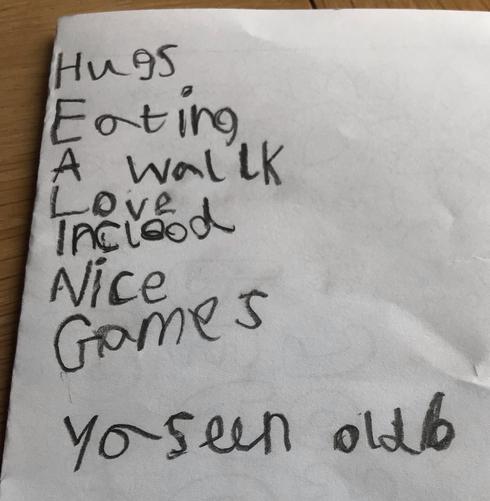 Hugs
Eating
A wallk
Love
Inclood
Nice
Games
yoseen old 6